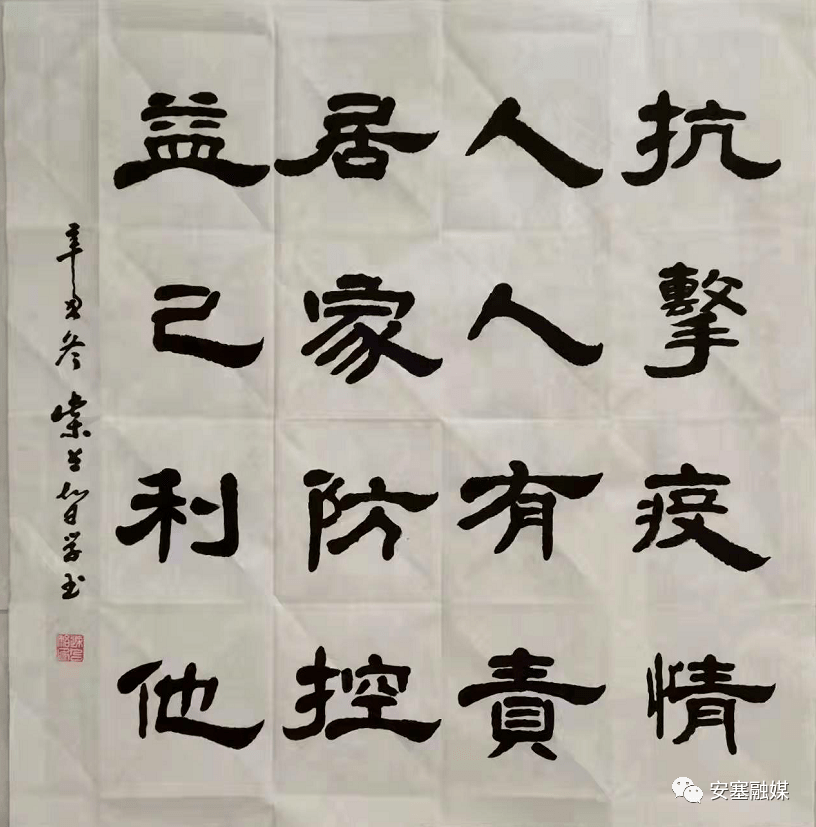 抗擊疫情
人人有責
居家防控
益己利他
辛丑冬
安塞融媒